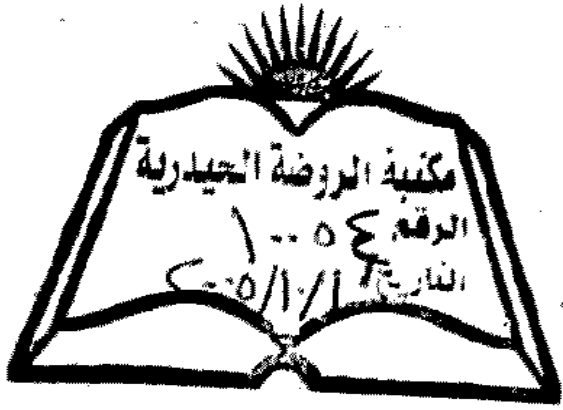 مكتبة الروضة الحيدرية
الرقم ١٠٠٥٤
التاريخ ٢٠٠٥/١٠/١